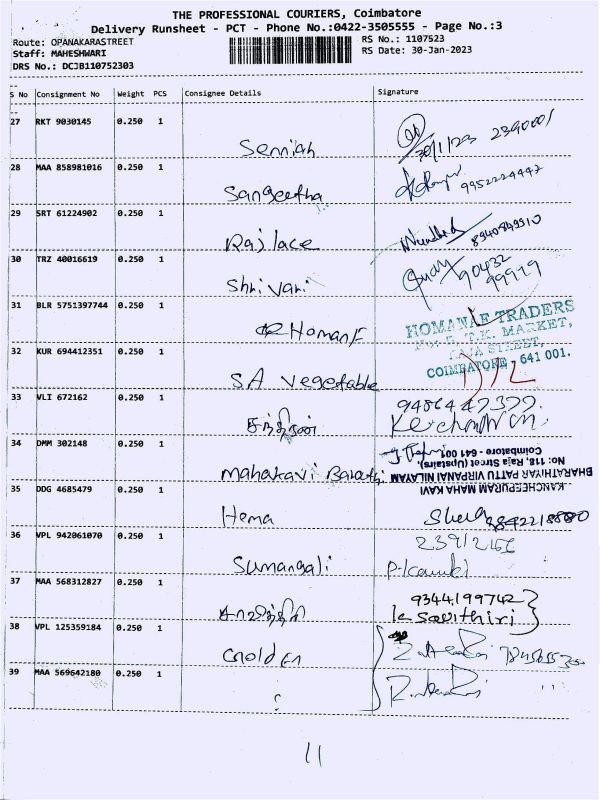 THE PROFESSIONAL COURIERS, Coimbatore
Delivery Runsheet - PCT - Phone No.:0422-3505555 - Page No.:3
Route: OPANAKARASTREET
RS No.: 1107523
Staff: MAHESHWARI
RS Date: 30-Jan-2023
DRS No.: DCJB110752303
S No Consignment No Weight PCS Consignee Details Signature
27 RKT 9030145 0.250 1
Senniah
30/1/23
28 MAA 858981016 0.250 1
Sangeetha
9952224442
29 SRT 61224902 0.250 1
Rajlace
8940849910
30 TRZ 40016619 0.250 1
Shrivari
90432
99919
31 BLR 5751397744 0.250 1
HOMANAE TRADERS
T.K. MARKET,
RAJA STREET,
COIMBATORE - 641 001.
32 KUR 694412351 0.250 1
SA vegetable
33 VLI 672162 0.250 1
34 DMM 302148 0.250 1
mahakavi Barathi
KANCHEEPURAM MAHA KAVI
BHARATHIYAR PATTU VIRPANAI NILAYAM
No: 118, Raja Street (Upstairs),
Coimbatore - 641 001
35 DDG 4685479 0.250 1
Hema
36 VPL 942061070 0.250 1
Sumangali
37 MAA 568312827 0.250 1
சாவித்திரி
9344199742
K Savithiri
38 VPL 125359184 0.250 1
Golden
39 MAA 569642180 0.250 1
11